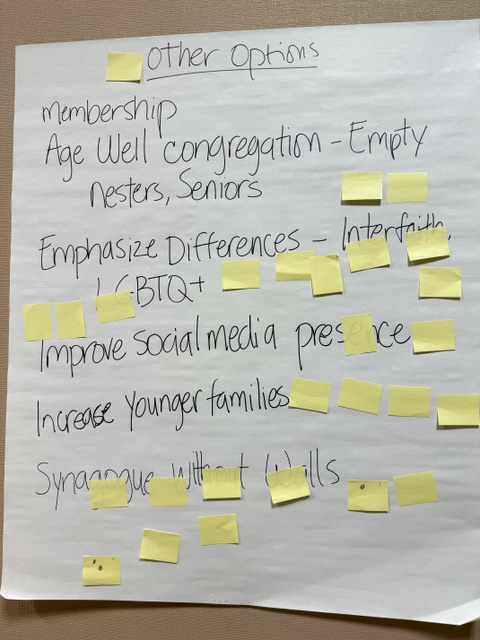 Other Options
membership
Age Well congregation - Empty
nesters, Seniors
Emphasize Differences - Interfaith,
LGBTQ+
Improve social media presence
Increase Younger families
Synagogue Without Walls